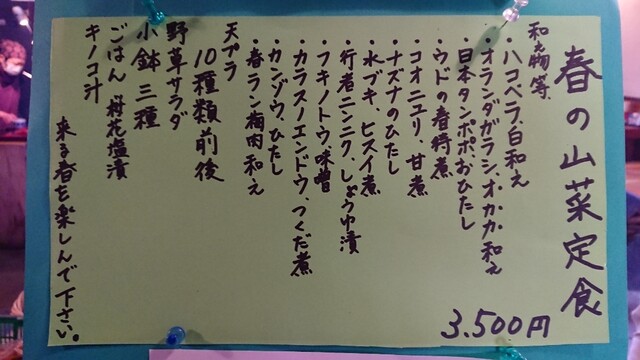 春の山菜定食
3.500円
和え物等、
・ハコベラ、白和え
・オランダガラシ、オカカ和え
・日本タンポポ、おひたし
・ウドの春煮
・コオニユリ、甘煮
・ナズナのひたし
・水ブキ、ヒスイ煮
・行者ニンニク、しょうゆ漬
・フキノトウ味噌
・カラスノエンドウ、つくだ煮
・カンゾウ、ひたし
・春ラン梅肉和え
天プラ
10種類前後
野草サラダ
小鉢三種
ごはん 桜花塩漬
キノコ汁
来る春を楽しんで下さい。